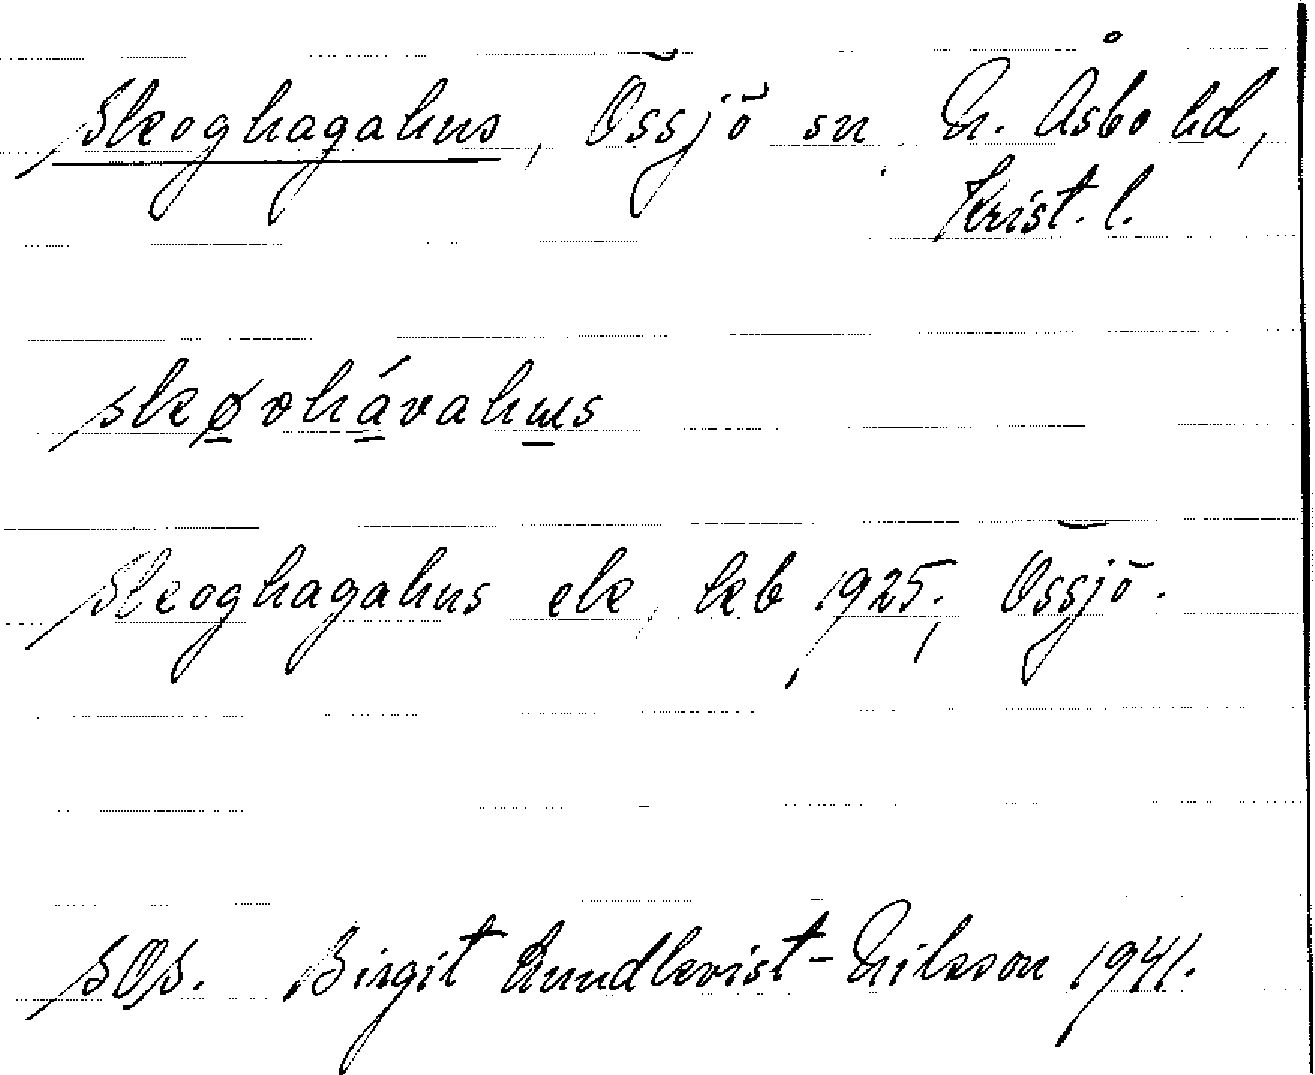 Skoghagahus, Össjö sn, N. Åsbo hd,
Krist. l.
skøvhávahus
Skoghagahus ek, kb 1925, Össjö.
SOS. Birgit Lundkvist-Nilsson 1941.